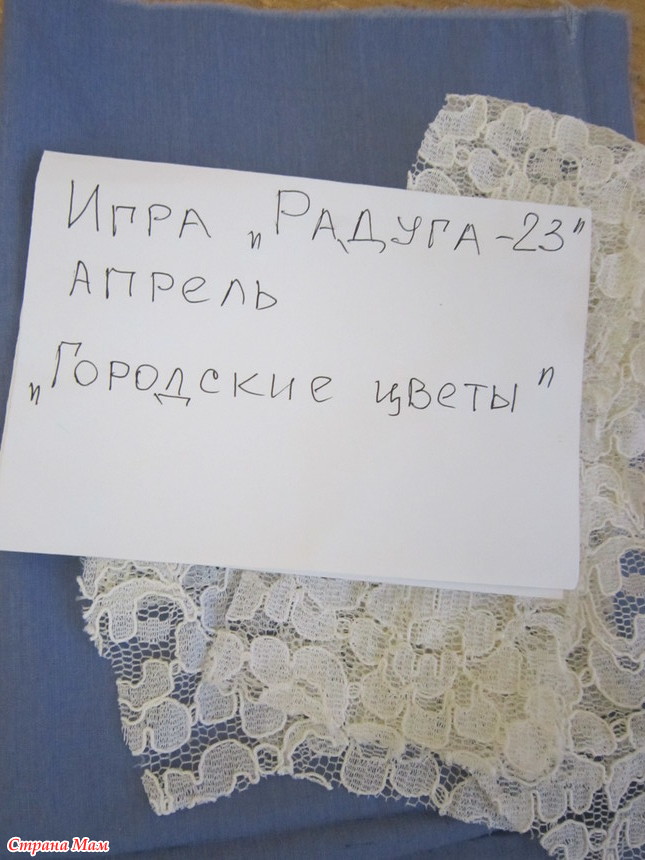 Игра „Радуга-23"
апрель
„Городские цветы"
Страна Мам